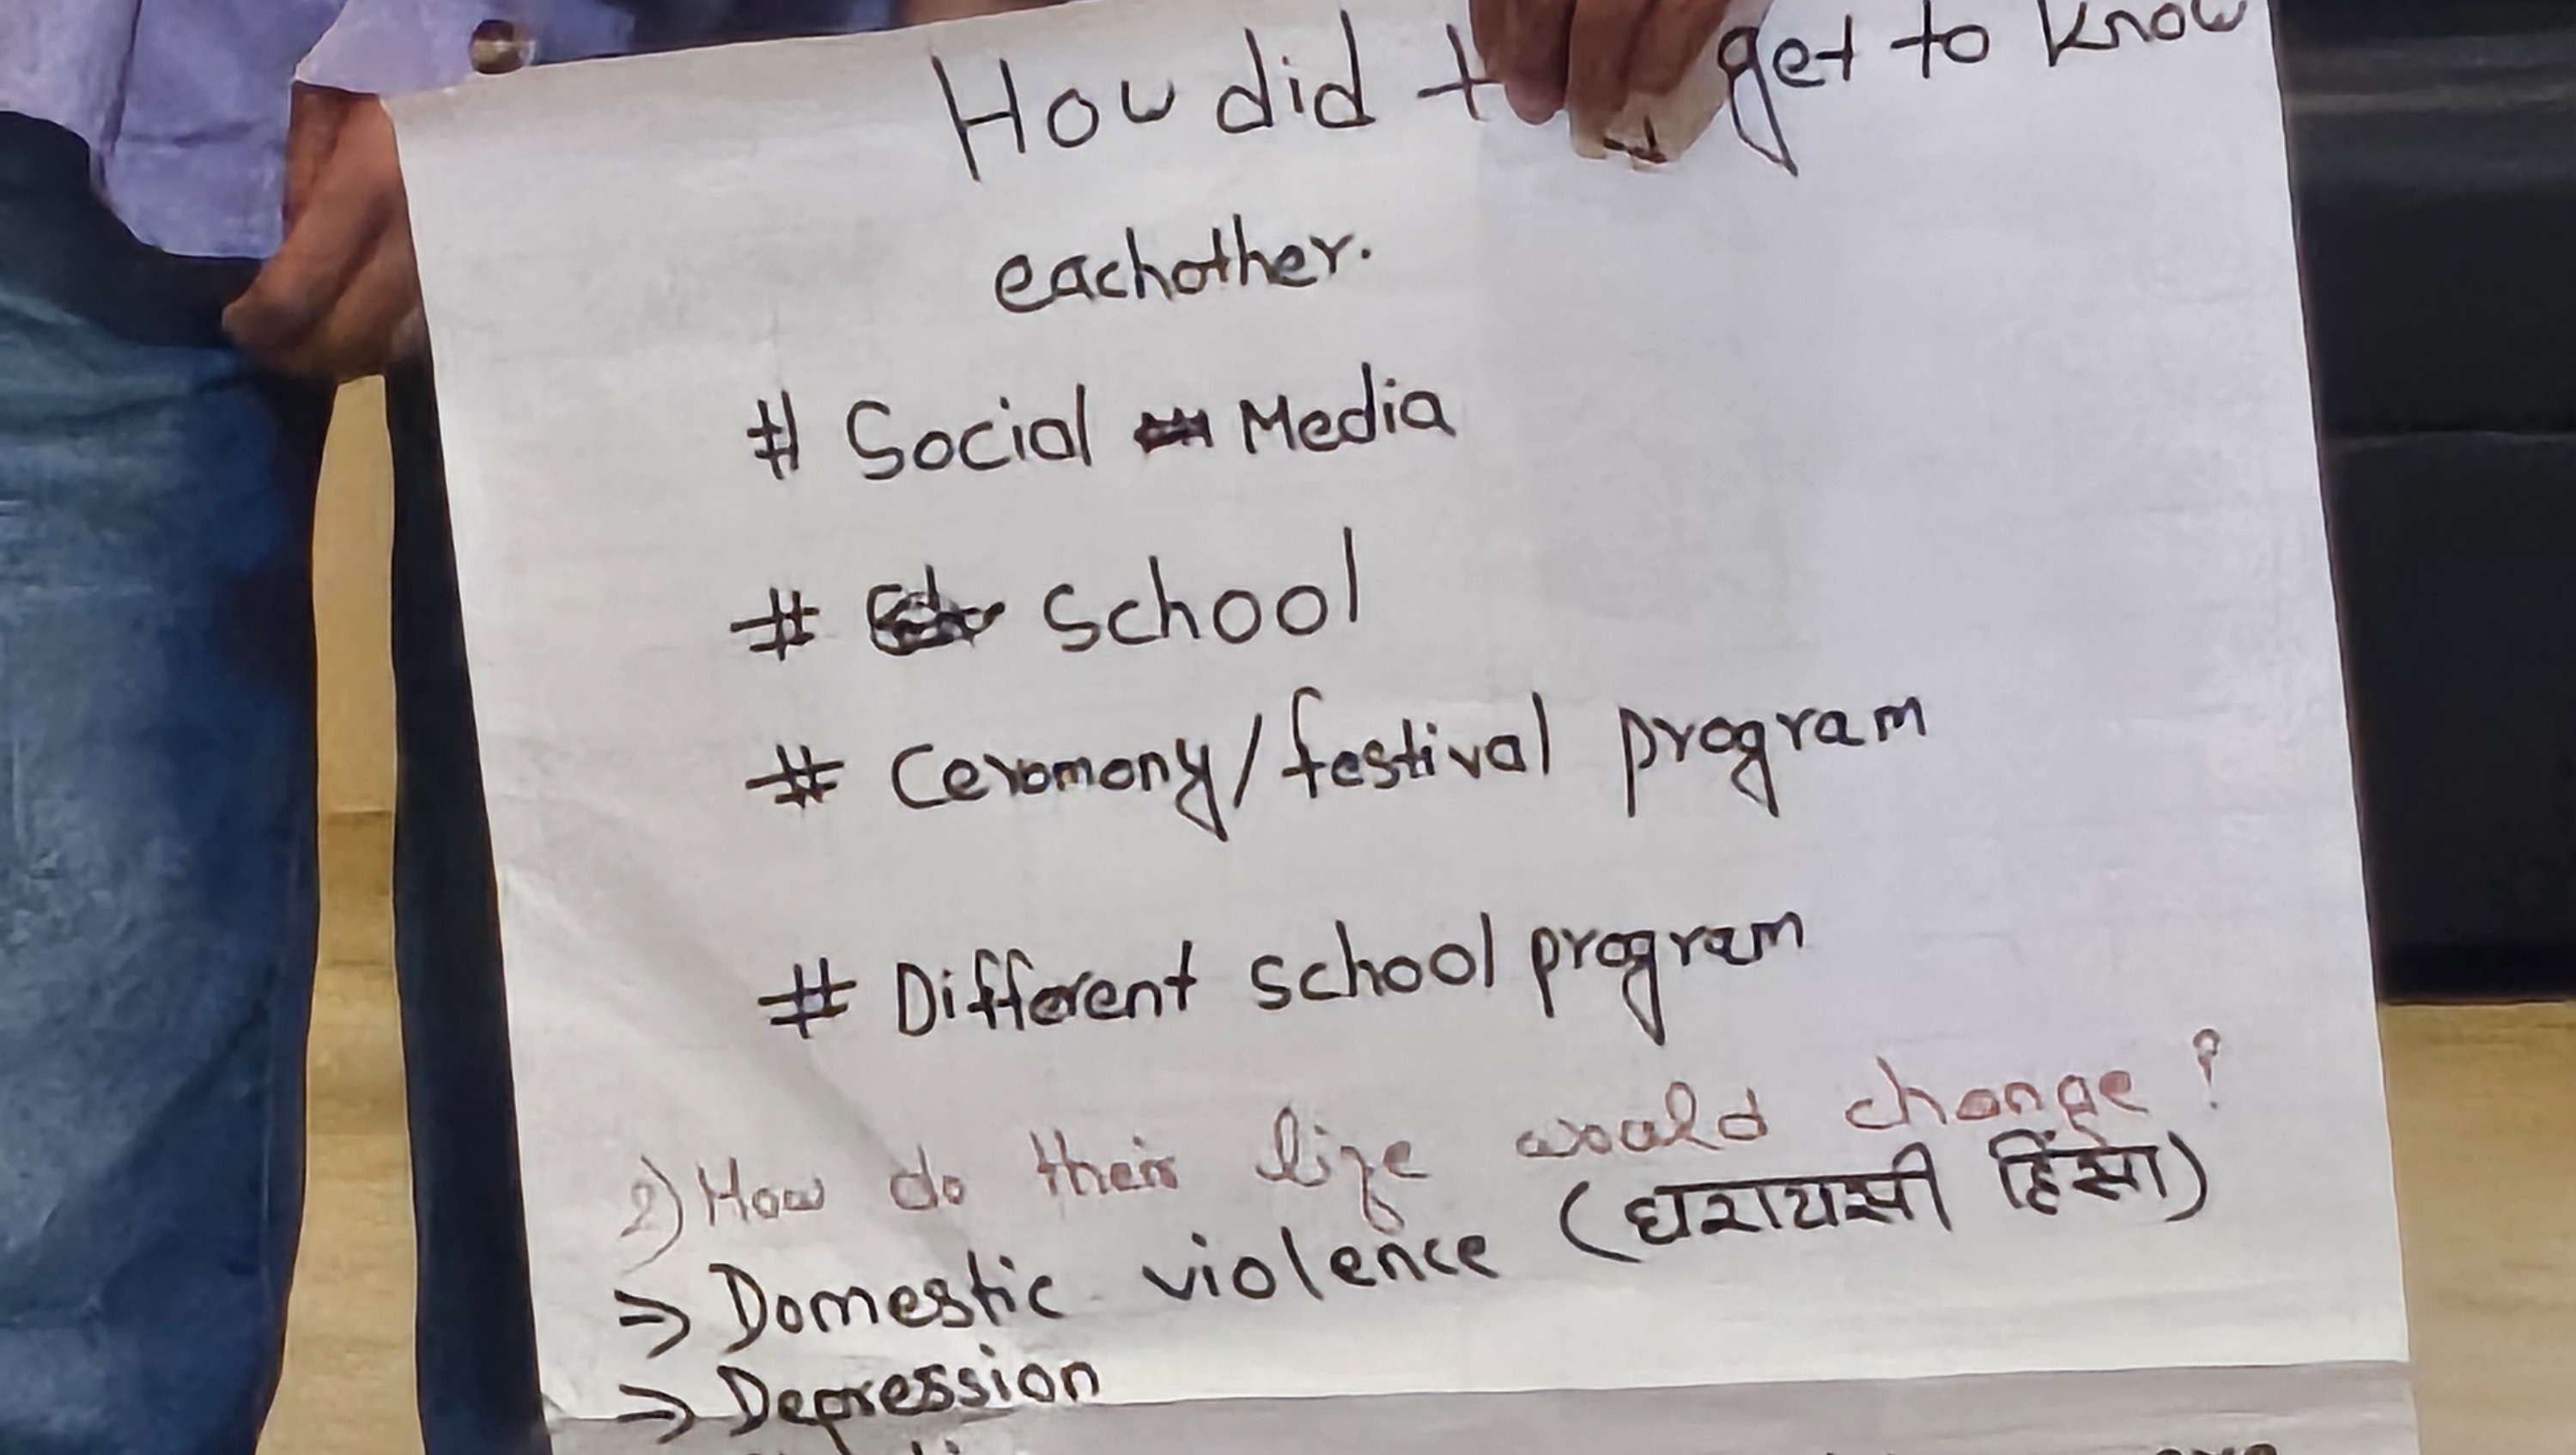 How did t get to know
eachother.
# Social Media
# School
# Ceromony/festival program
# Different school program
2) How do their life would change?
⇒ Domestic violence (घरायसी हिंसा)
⇒ Depression